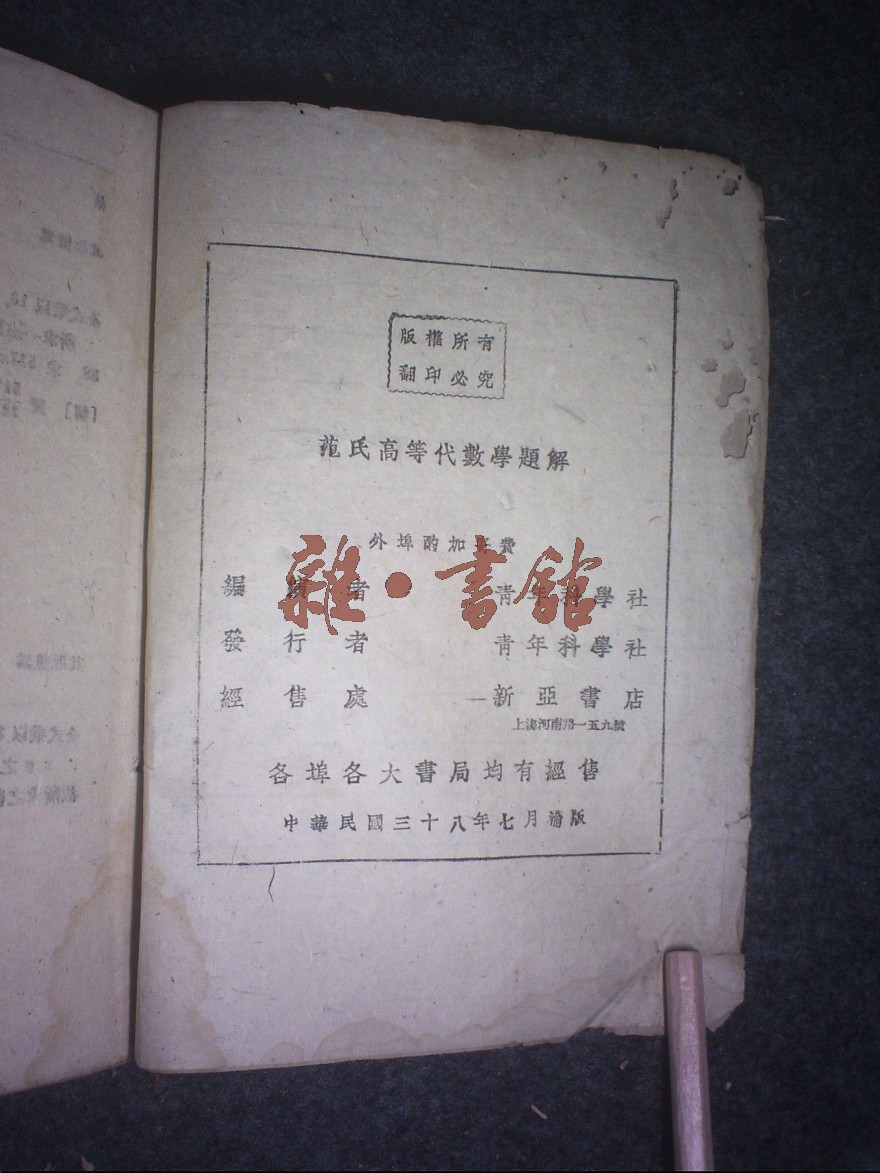 版權所有
翻印必究
范氏高等代數學題解
外埠酌加 費
編 者 青年科學社
發行者 青年科學社
經售處 新亞書店
上海河南路一五九號
各埠各大書局均有經售
中華民國三十八年七月滬版
雜·書館